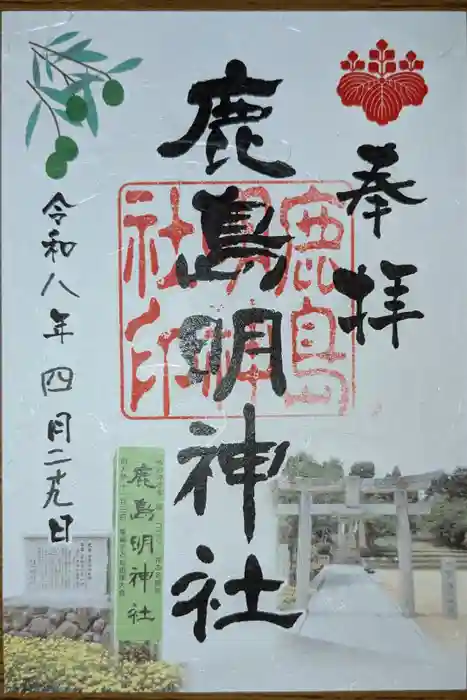 奉拝
鹿島明神社
鹿島
明神
社印
令和八年四月二十九日
鹿島明神社